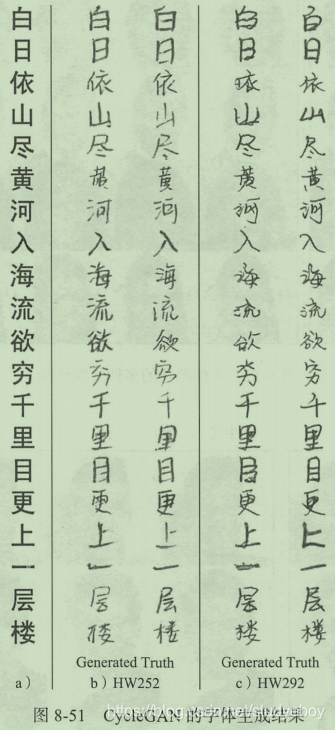 白 白 白 白 白
日 日 日 日 日
依 依 依 依 依
山 山 山 山 山
尽 尽 尽 尽 尽
黄 黄 黄 黄 黄
河 河 河 河 河
入 入 入 入 入
海 海 海 海 海
流 流 流 流 流
欲 欲 欲 欲 欲
穷 穷 穷 穷 穷
千 千 千 千 千
里 里 里 里 里
目 目 目 目 目
更 更 更 更 更
上 上 上 上 上
一 一 一 一 一
层 层 层 层 层
楼 楼 楼 楼 楼
Generated Truth Generated Truth
a） b）HW252 c）HW292
图 8-51 CycleGAN 的字体生成结果